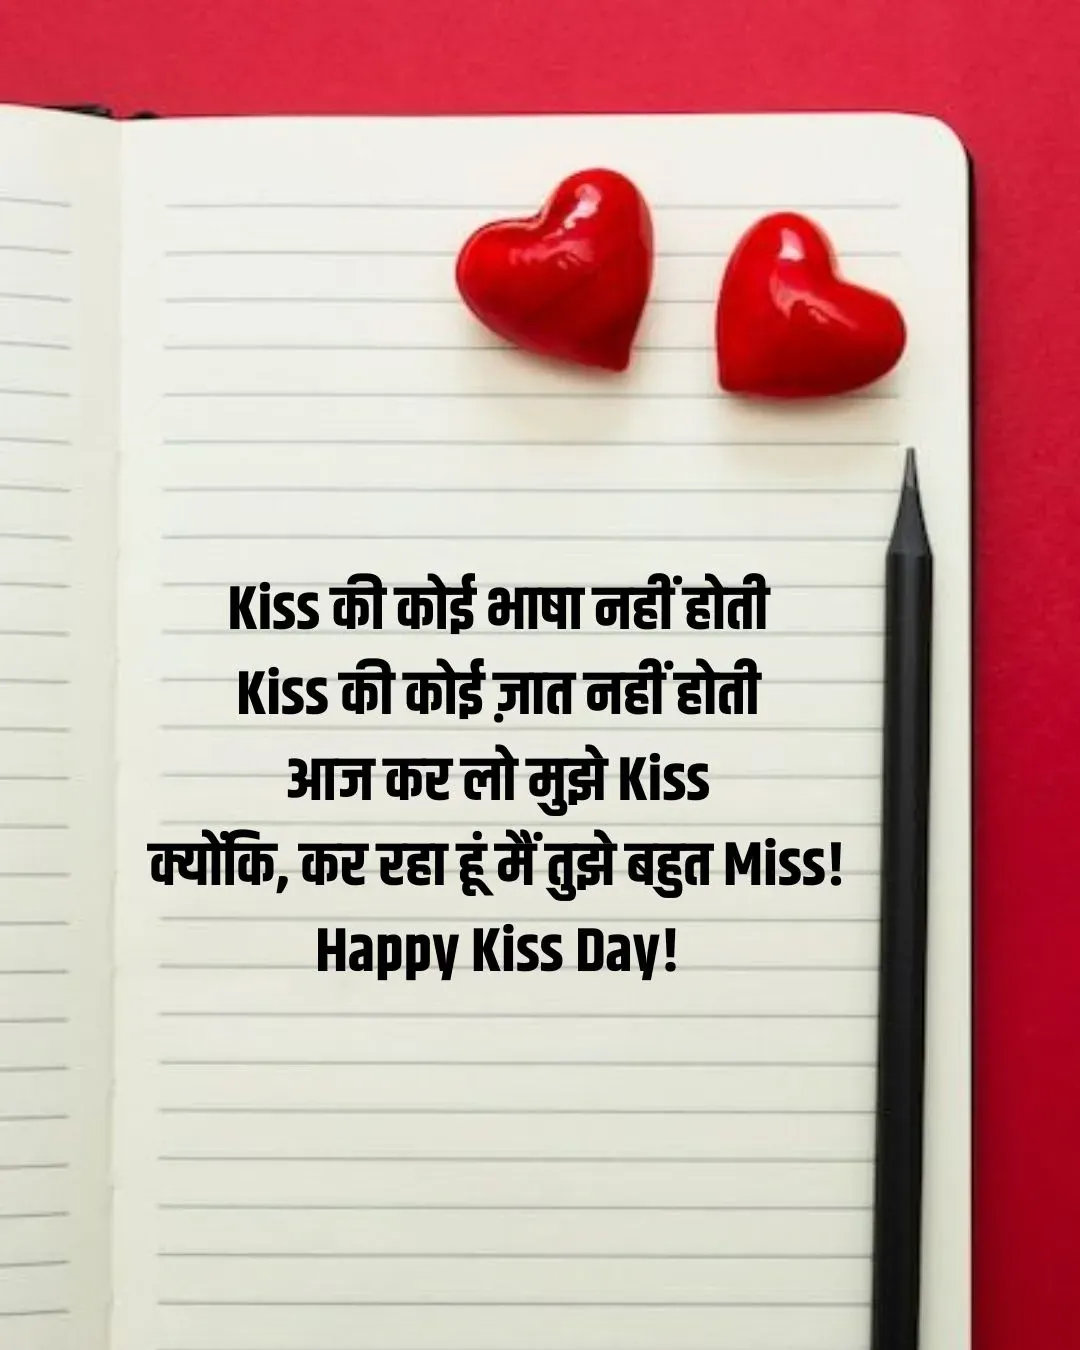 Kiss की कोई भाषा नहीं होती
Kiss की कोई ज़ात नहीं होती
आज कर लो मुझे Kiss
क्योंकि, कर रहा हूं मैं तुझे बहुत Miss!
Happy Kiss Day!